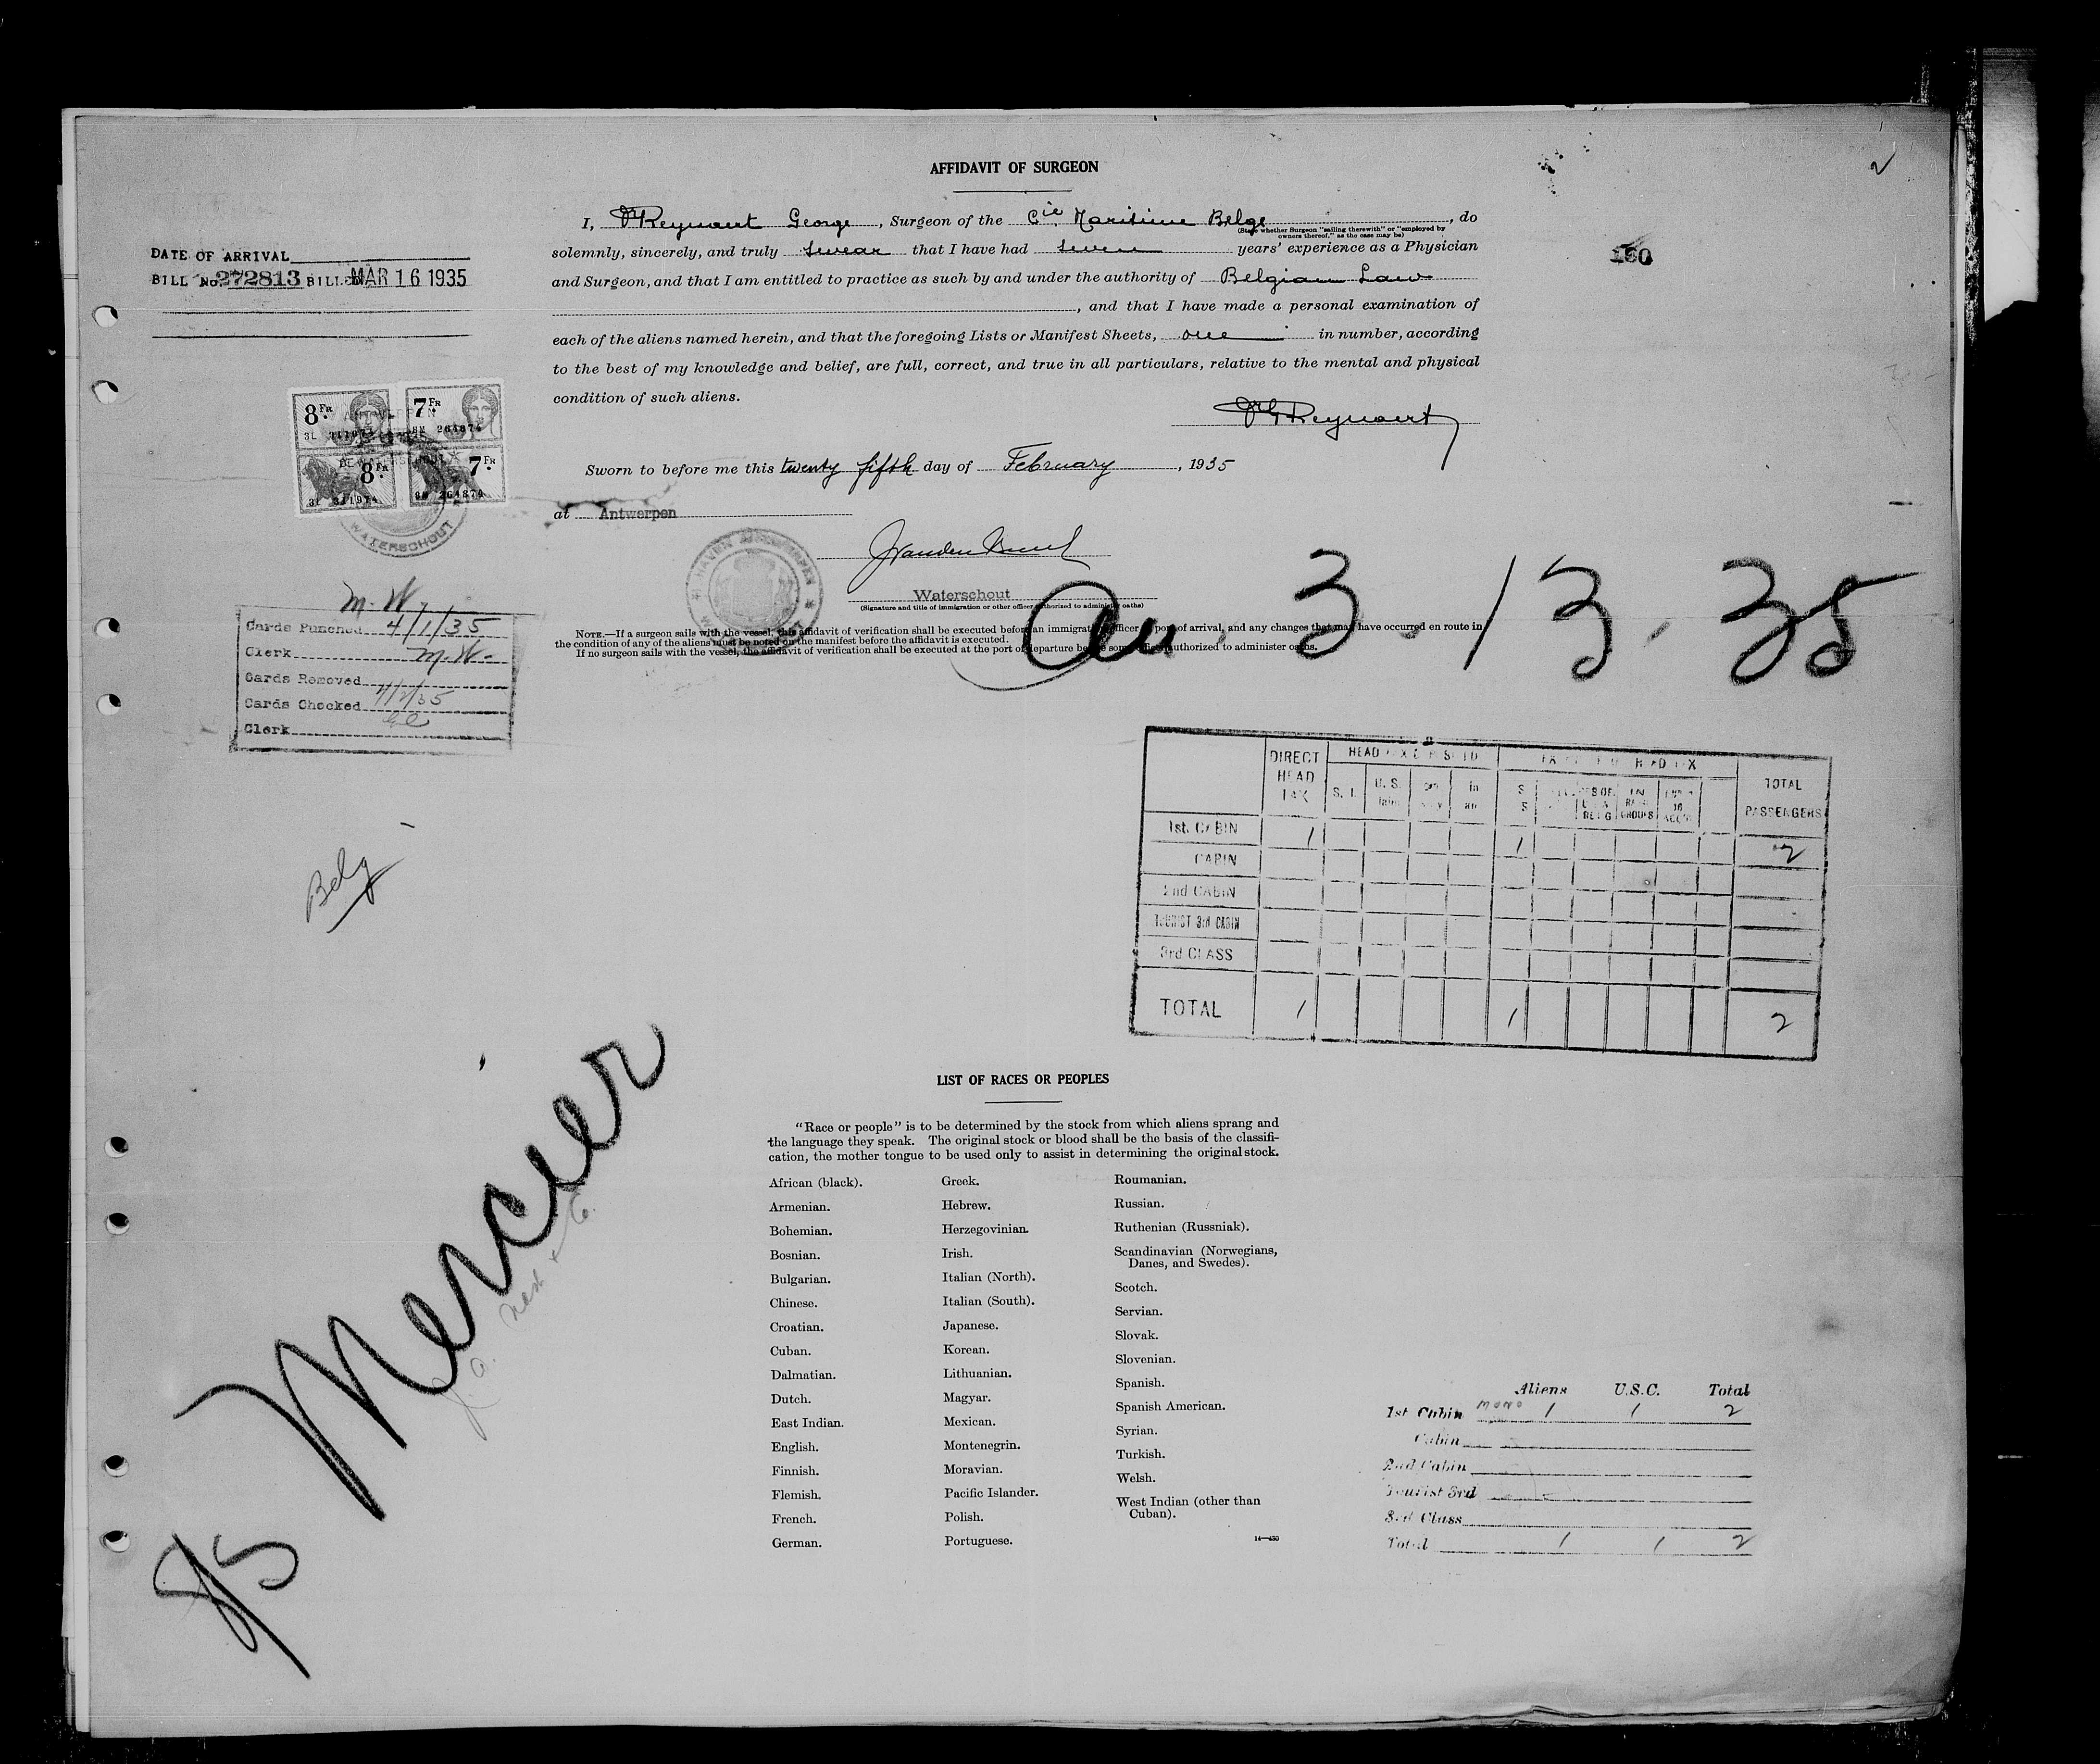 2
AFFIDAVIT OF SURGEON
I, Dr Reynaert George, Surgeon of the Cie. Maritime Belge, do
(State whether Surgeon "sailing therewith" or "employed by
owners thereof," as the case may be)
solemnly, sincerely, and truly swear that I have had seven years' experience as a Physician
and Surgeon, and that I am entitled to practice as such by and under the authority of Belgian Law
, and that I have made a personal examination of
each of the aliens named herein, and that the foregoing Lists or Manifest Sheets, one in number, according
to the best of my knowledge and belief, are full, correct, and true in all particulars, relative to the mental and physical
condition of such aliens.
Dr G Reynaert
Sworn to before me this twenty fifth day of February, 1935
at Antwerpen
Waterschout
(Signature and title of immigration or other officer authorized to administer oaths)
NOTE.—If a surgeon sails with the vessel, this affidavit of verification shall be executed before an immigration officer at port of arrival, and any changes that may have occurred en route in
the condition of any of the aliens must be noted on the manifest before the affidavit is executed.
If no surgeon sails with the vessel, the affidavit of verification shall be executed at the port of departure before some officer authorized to administer oaths.
160
DATE OF ARRIVAL
BILL No. 272813 BILLED MAR 16 1935
8 FR 7 FR
8 FR 7 FR
WATERSCHOUT
M. W.
Cards Punched 4/1/35
Clerk M. W.
Cards Removed
Cards Checked 4/2/35
Clerk
3. 13. 35
Belg
DIRECT HEAD TAX
TOTAL PASSENGERS
1st. CABIN 1 1 2
CABIN
2nd CABIN
TOURIST 3rd CABIN
3rd CLASS
TOTAL 1 1 2
S/S Mercier
LIST OF RACES OR PEOPLES
"Race or people" is to be determined by the stock from which aliens sprang and
the language they speak. The original stock or blood shall be the basis of the classifi-
cation, the mother tongue to be used only to assist in determining the original stock.
African (black).
Armenian.
Bohemian.
Bosnian.
Bulgarian.
Chinese.
Croatian.
Cuban.
Dalmatian.
Dutch.
East Indian.
English.
Finnish.
Flemish.
French.
German.
Greek.
Hebrew.
Herzegovinian.
Irish.
Italian (North).
Italian (South).
Japanese.
Korean.
Lithuanian.
Magyar.
Mexican.
Montenegrin.
Moravian.
Pacific Islander.
Polish.
Portuguese.
Roumanian.
Russian.
Ruthenian (Russniak).
Scandinavian (Norwegians,
Danes, and Swedes).
Scotch.
Servian.
Slovak.
Slovenian.
Spanish.
Spanish American.
Syrian.
Turkish.
Welsh.
West Indian (other than
Cuban).
14—430
Aliens U.S.C. Total
1st Cabin 1 1 2
Cabin
2nd Cabin
Tourist 3rd
3rd Class
Total 1 1 2